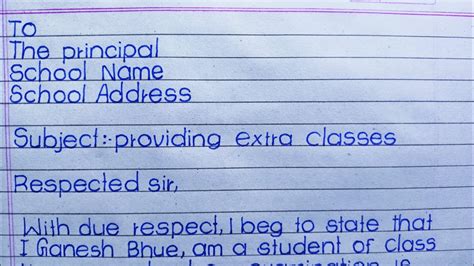 To
The principal
School Name
School Address
Subject:-providing extra classes
Respected sir,
With due respect, I beg to state that
I Ganesh Bhue, am a student of class